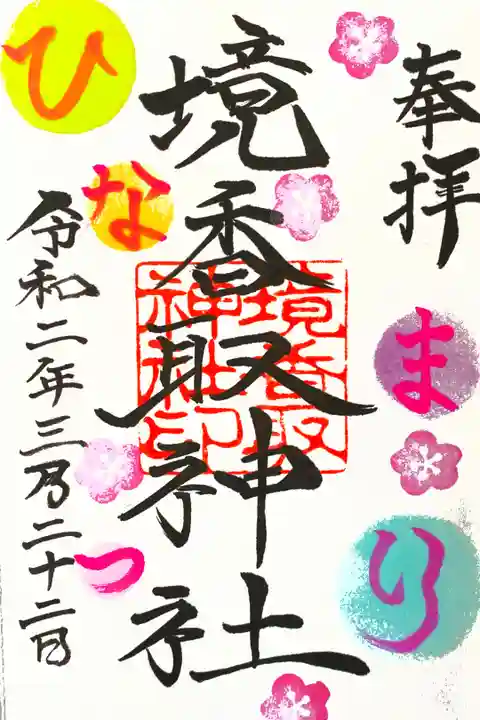 奉拝
境香取神社
境香取神社印
令和二年三月二十二日
ひなまつり